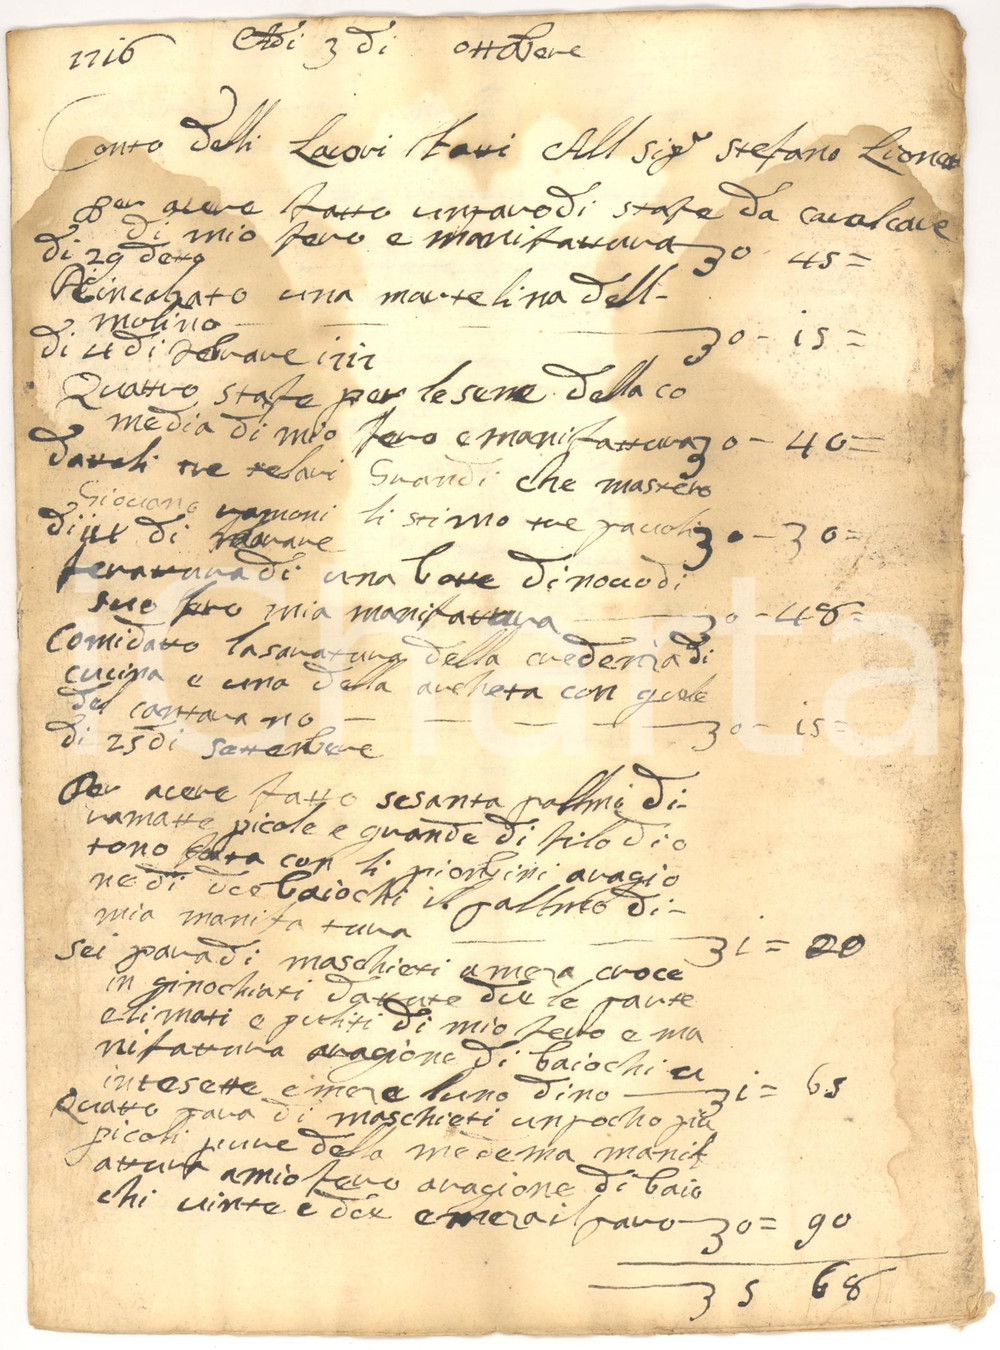 1716 Adi 3 di ottobere
Conto delli Lavori fatti All Sigr stefano Lionet
per avere fatto unparodi stafe da cavalcare
di mio fero e manifattura 30 - 45 =
di 29 deto
Rincalzato una martelina dell-
molino 30 - 15 =
di 4 di febrare 1717
Quattro stafe per le sene della co
media di mio fero e manifattura 30 - 40 =
datoli tre telari Grandi che mastero
Giovano ramoni li stimo tre pavoli 30 - 30 =
di di febrare
feratura di una botte dinovo di
suo fero mia manifattura 30 - 48 =
Comidatto lasaratura della credenza di
cucina e una della archeta con quele
del cantara no 30 - 15 =
di 25 di settenbere
Per avere fatto sesanta pallmi di-
ramatte picole e grande di filo dio
tono fatta con li pionbini aragio
ne di due baiochi il pallmo di-
mia manifattura 31 = 20
Sei para di maschieti a meza croce
in ginochiati dattute due le parte
e limati e puliti di mio fero e ma
nifattura aragione di baiochi u
intesette e meze luno dino 31 = 65
Quatto para di maschieti unpocho più
picoli pure della medema manif
attura amio fero aragione di baio
chi vinte e due e meza il paro 30 = 90
35 68
iCharta